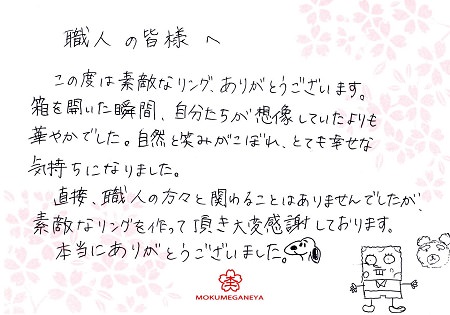 職人の皆様へ
この度は素敵なリング、ありがとうございます。
箱を開いた瞬間、自分たちが想像していたよりも
華やかでした。自然と笑みがこぼれ、とても幸せな
気持ちになりました。
直接、職人の方々と関わることはありませんでしたが、
素敵なリングを作って頂き大変感謝しております。
本当にありがとうございました。
MOKUMEGANEYA